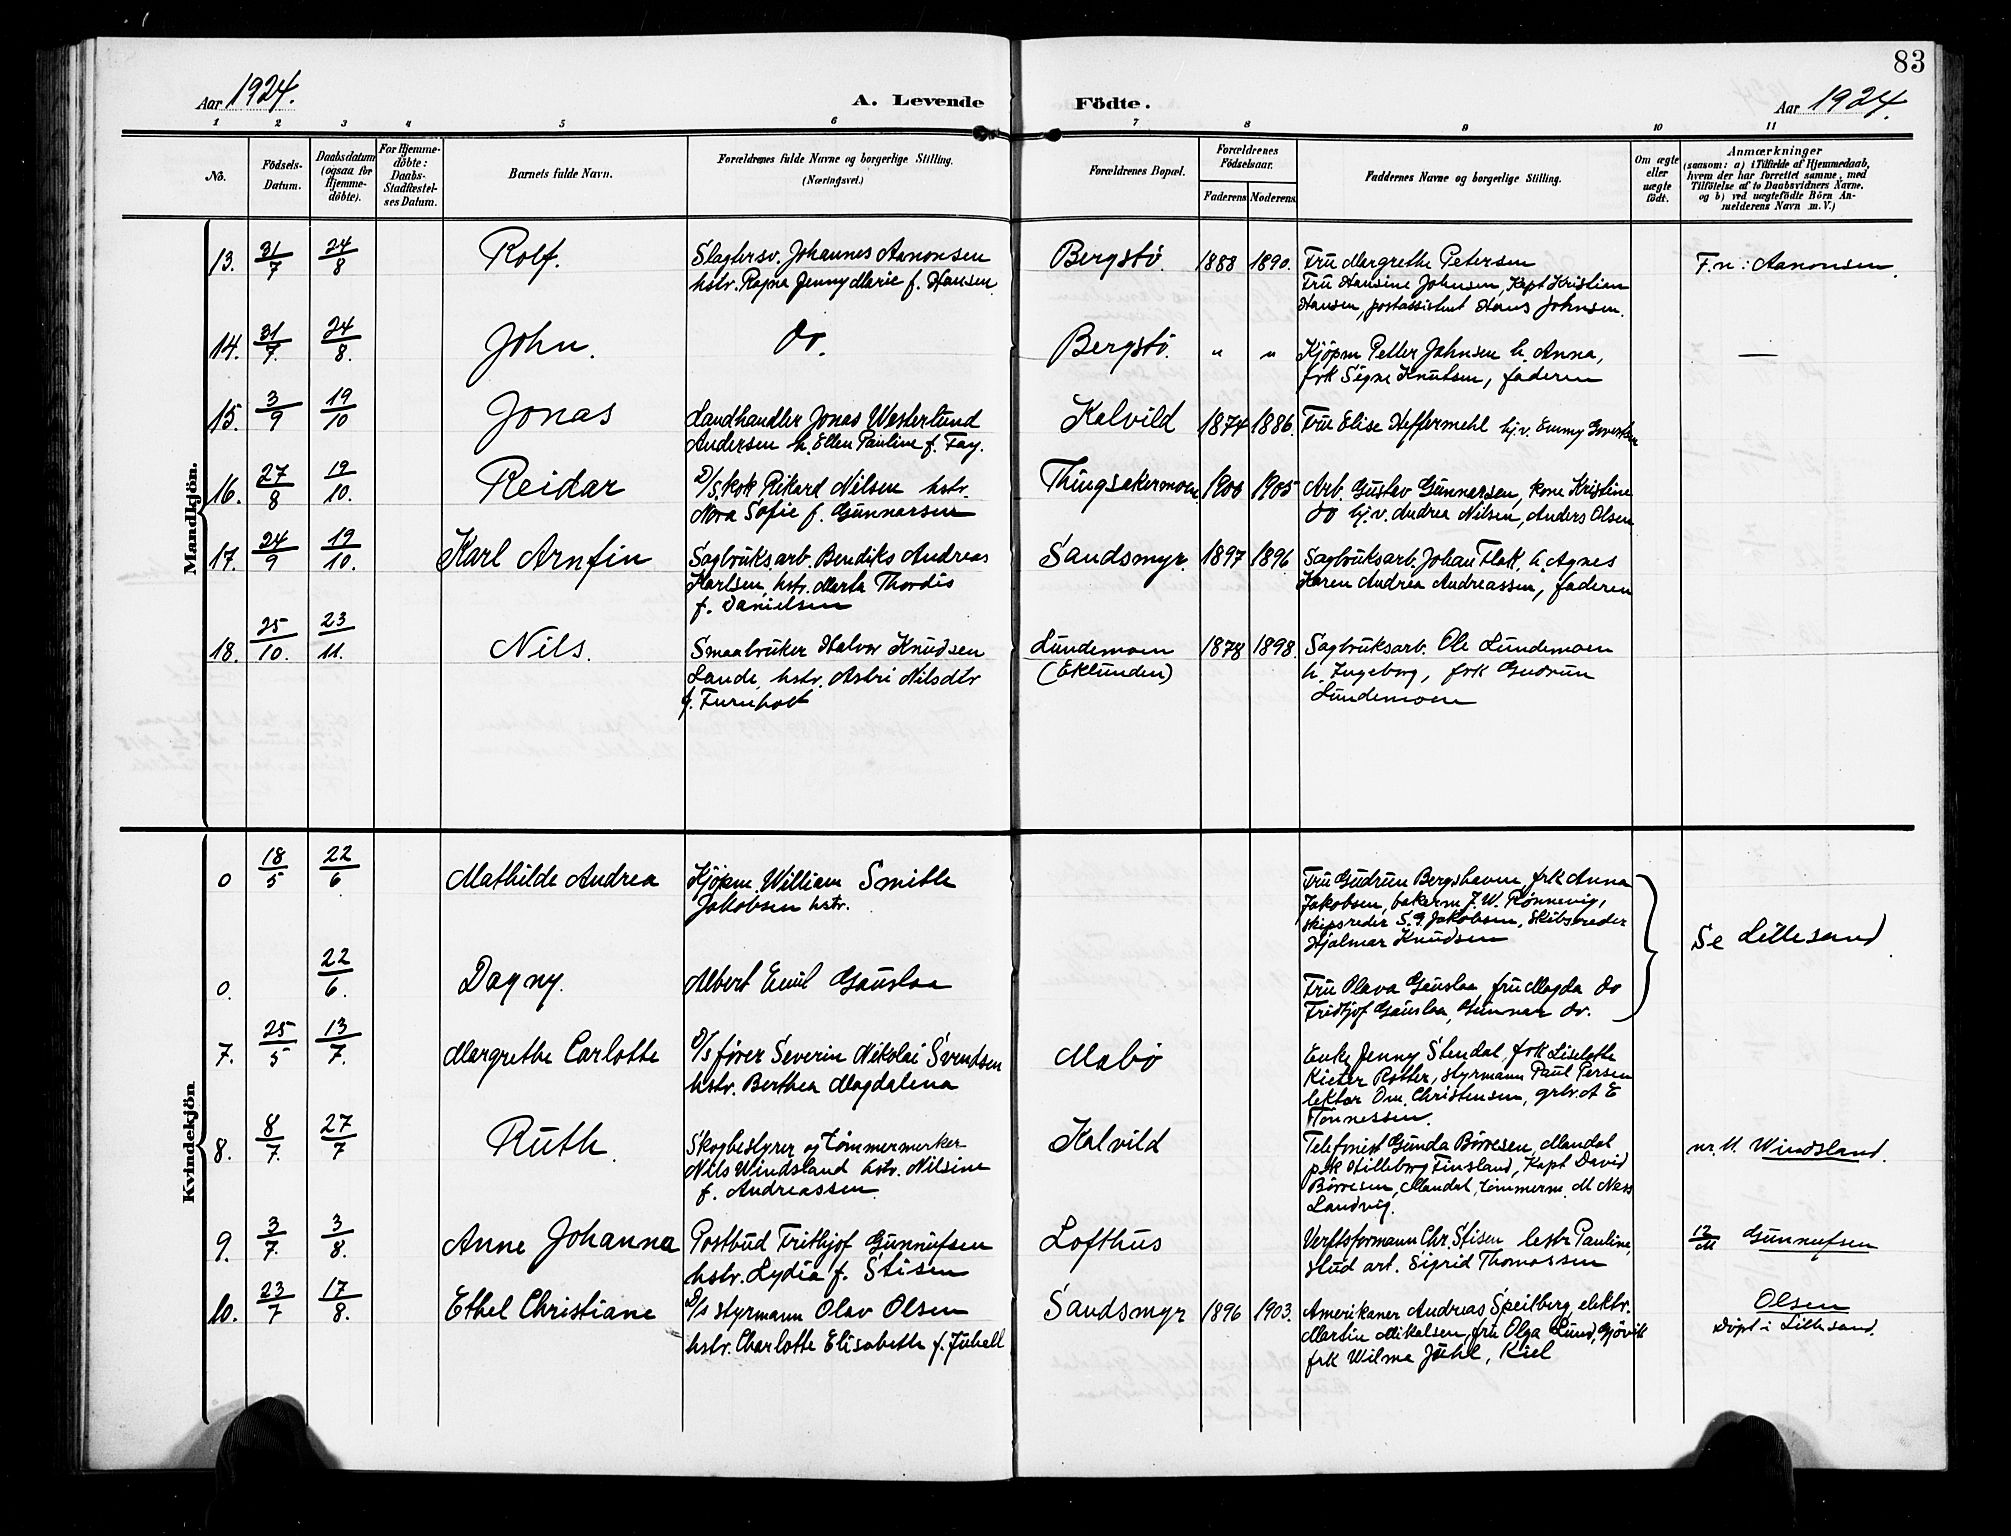 83
Aar 1924. A. Levende Födte. Aar 1924.
1 2 3 4 5 6 7 8 9 10 11
No. Födsels-Datum. Daabsdatum (ogsaa for Hjemme-döbte). For Hjemme-döbte: Daabs-Stadfæstel-ses Datum. Barnets fulde Navn. Forældrenes fulde Navne og borgerlige Stilling. (Næringsvei.) Forældrenes Bopæl. Forældrenes Födselsaar. Faderens Moderens Faddernes Navne og borgerlige Stilling. Om ægte eller uægte födt. Anmærkninger (saasom: a) i Tilfælde af Hjemmedaab, hvem der har forrettet samme, med Tilföielse af to Daabsvidners Navne. og b) ved uægtefödte Börn An-melderens Navn m. V.)
Mandkjön.
13. 31/7 24/8 Rolf. Slagtersv. Johannes Aanonsen Bergstø. 1888 1890. Fru Margrethe Petersen F.n: Aanonsen.
hstr. Ragna Jenny Marie f. Hansen Fru Hansine Johnsen, Kapt Kristian
Hansen, postassistent Hans Johnsen.
14. 31/7. 24/8. John. Do. Bergstø. " " Kjøpm Petter Johnsen h. Anna, —
frk Signe Knutsen, faderen
15. 3/9 19/10 Jonas Landhandler Jonas Westerlund Kalvild 1874 1886. Fru Elise Heffermehl hj.v. Emmy
Andersen h. Ellen Pauline f. Fay.
16. 27/8 19/10. Reidar D/S. kok Rikard Nilsen hstr. Thingsakermoen 1900 1905 Arb. Gustav Gunnarsen, kone Kristine
Nora Sofie f. Gunnarsen do hj.v. Andrea Nilsen, Anders Olsen
17. 24/9 19/10. Karl Arnfin Sagbruksarb. Bendiks Andreas Sandsmyr. 1897 1896 Sagbruksarb. Johan Flak h. Agnes
Karlsen, hstr. Marta Thordis Karen Andrea Andreassen, faderen
f. Danielsen
18. 25/10. 23/11. Nils. Smaabruker Halvor Knudsen Lundemoen 1878 1898. Sagbruksarb. Ole Lundemoen
Lande, hstr. Astri Nilsdtr (Eklunden) h. Ingeborg, frk Gudrun
f. Furuholt Lundemoen
Kvindekjön
0 18/5 22/6 Mathilde Andrea Kjøpm. William Smith Fru Gudrun Bergshavn, frk Anna
Jakobsen hstr. Jakobsen, bakerm J.W. Rønnevig,
skipsreder S.G. Jakobsen, Skibsreder
Hjalmar Knudsen Se Lillesand
0. 22/6. Dagny. Albert Emil Gauslaa Fru Olava Gauslaa fru Magda do
Fridtjof Gauslaa, Gunnar do.
7. 25/5 13/7. Margrethe Carlotte D/s fører Severin Nikolai Svendsen Mabø Enke Jenny Stendal, frk Liselotte
hstr. Berthea Magdalena Kieter Rotter, styrmann Paul Persen
lektor Om. Christensen, grbr. A E
Tønnessen.
8. 8/7. 27/7 Ruth. Skogbestyrer og tømmermerker Kalvild Telefonist Gunda Børresen, Mandal nr. 11. Windsland.
Nils Windsland hstr. Nilsine frk Hilleborg Finsland, Kapt David
f. Andreassen Børresen, Mandal, tømmerm. M Næss
Landvig.
9. 3/7. 3/8. Anne Johanna Postbud Frithjof Gunnufsen Lofthus Verftsformann Chr. Stisen hstr Pauline, 12/11 Gunnufsen
hstr. Lydia f. Stisen stud art. Sigrid Thomassen
10. 23/7 17/8. Ethel Christiane D/s styrmann Olav Olsen Sandsmyr 1896 1903. Amerikaner Andreas Speilberg, elektr. Olsen
hstr. Charlotte Elisabeth f. Juhell Martin Mikalsen, fru Olga Lund, Gjøvik Døpt i Lillesand.
frk Wilma Juhl, Kiel